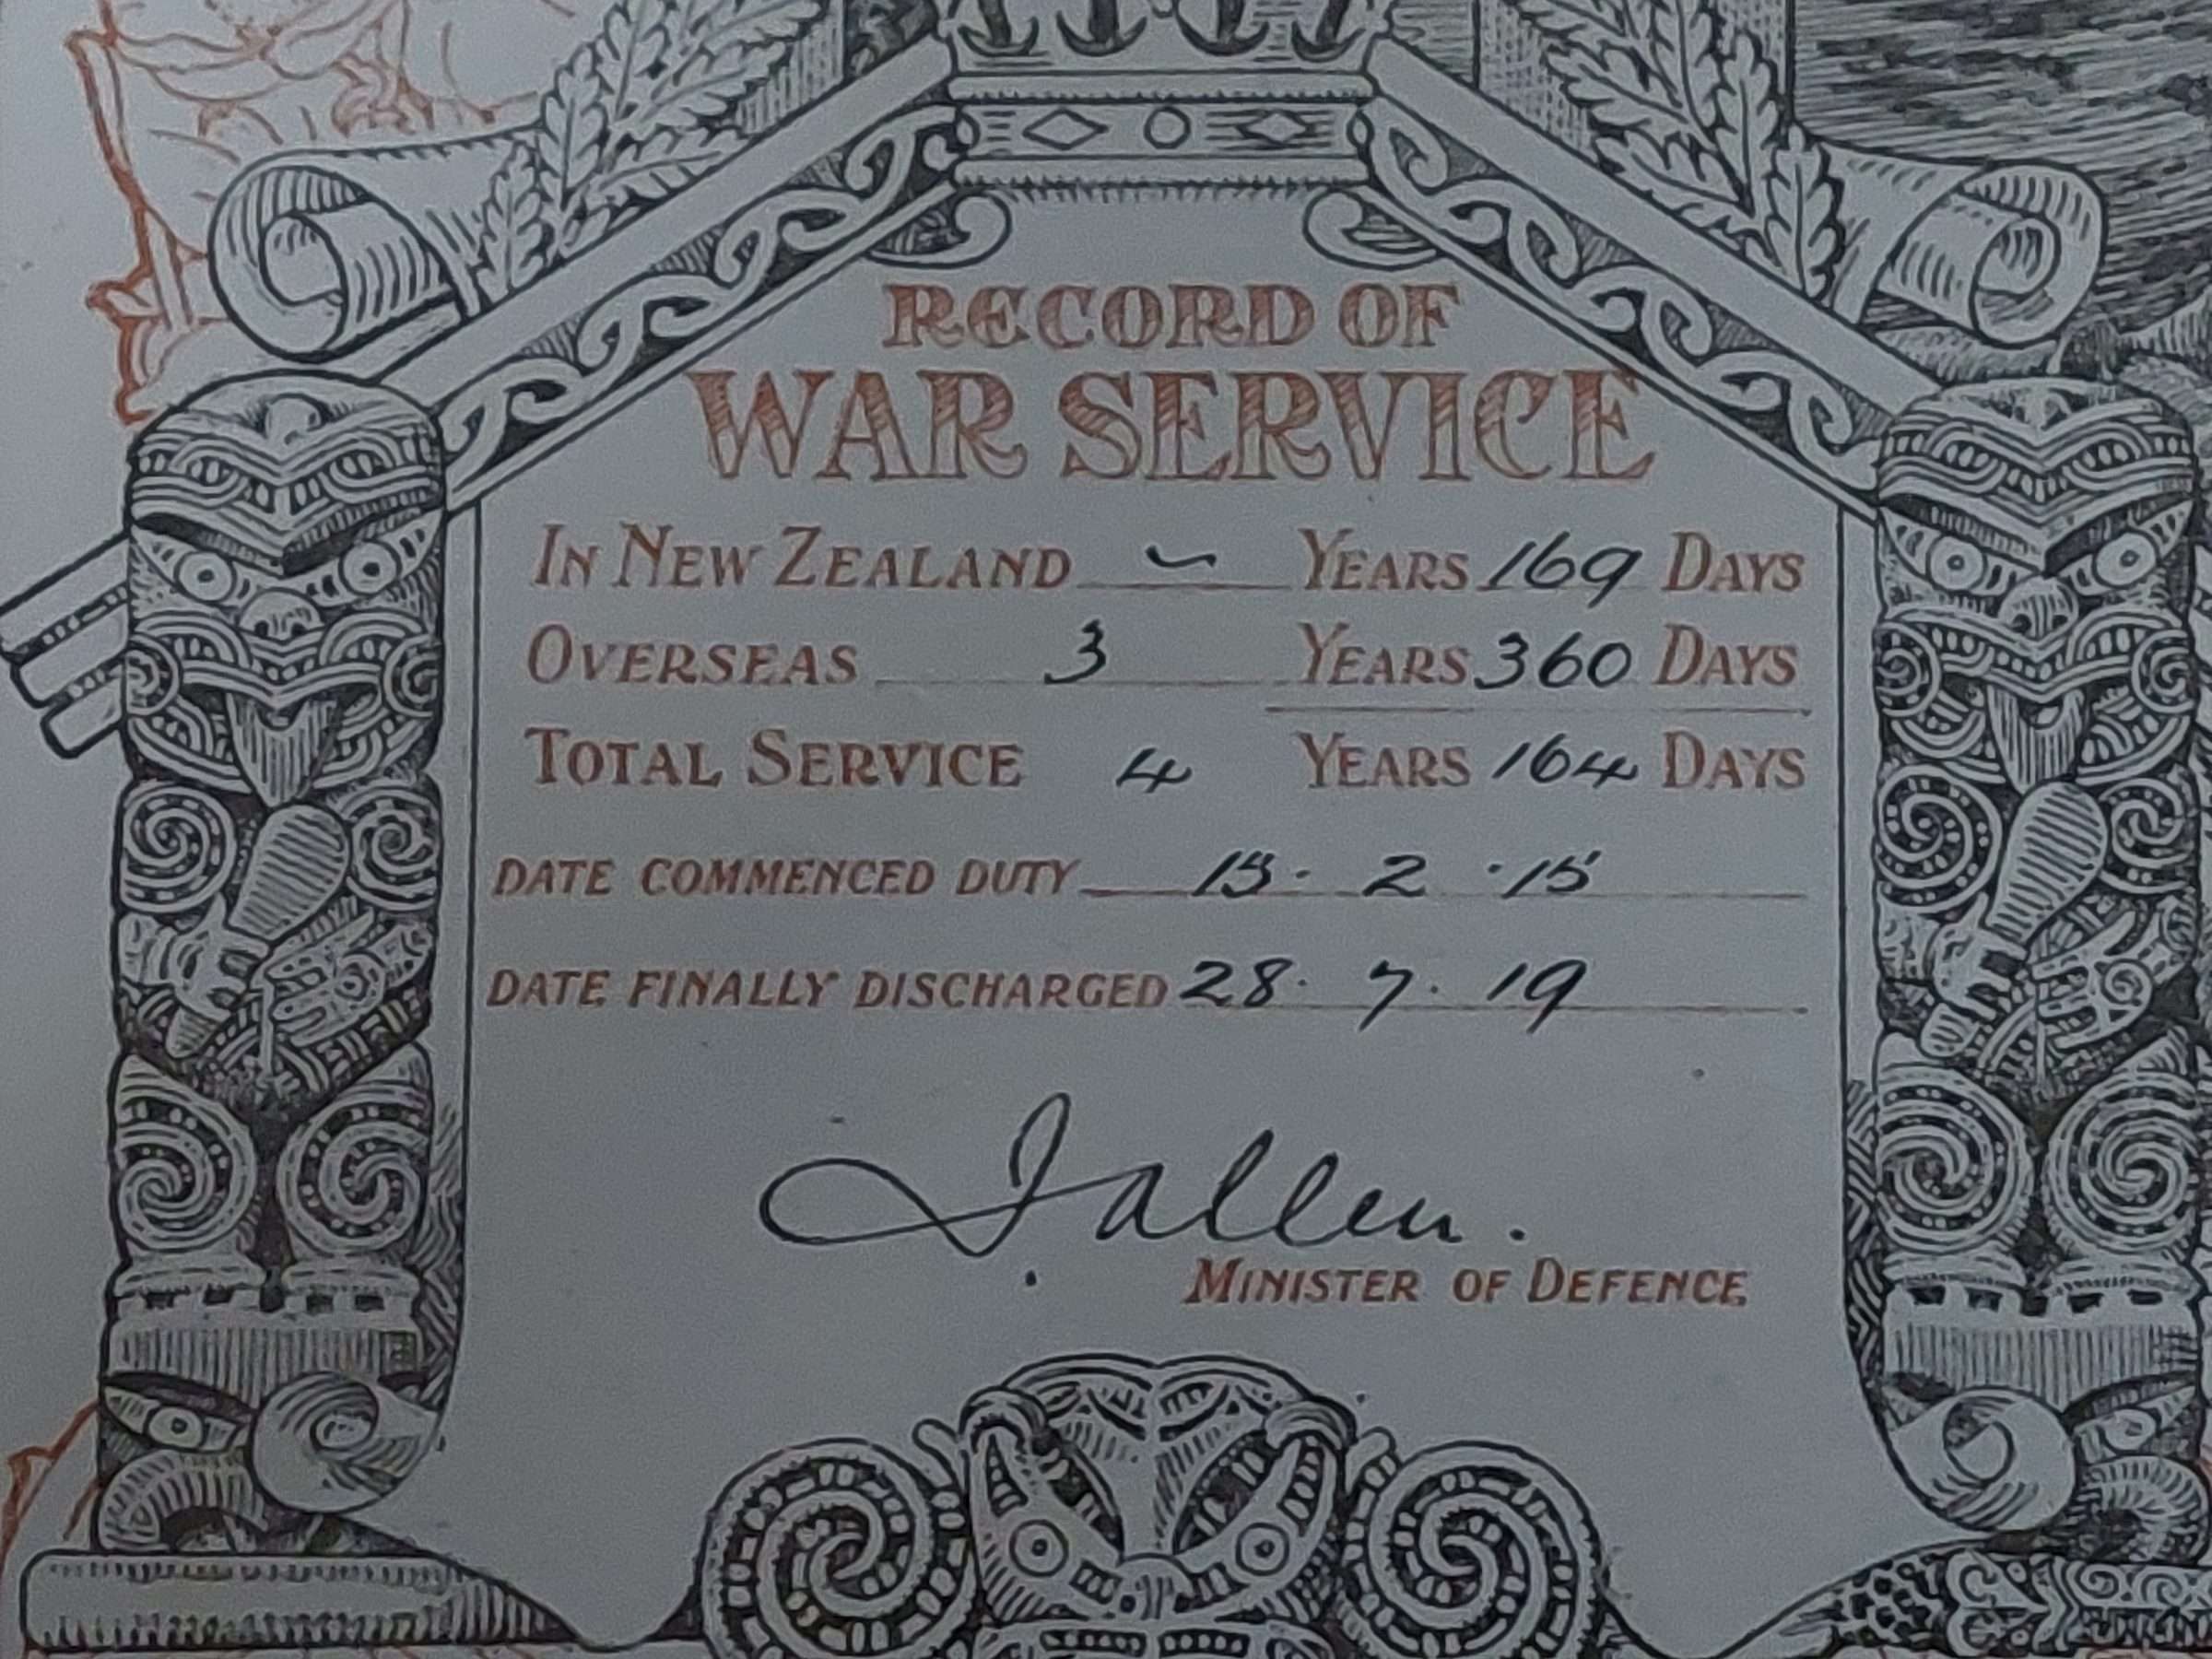 RECORD OF
WAR SERVICE
IN NEW ZEALAND ~ YEARS 169 DAYS
OVERSEAS 3 YEARS 360 DAYS
TOTAL SERVICE 4 YEARS 164 DAYS
DATE COMMENCED DUTY 15 · 2 · 15
DATE FINALLY DISCHARGED 28 · 7 · 19
JAllen.
MINISTER OF DEFENCE